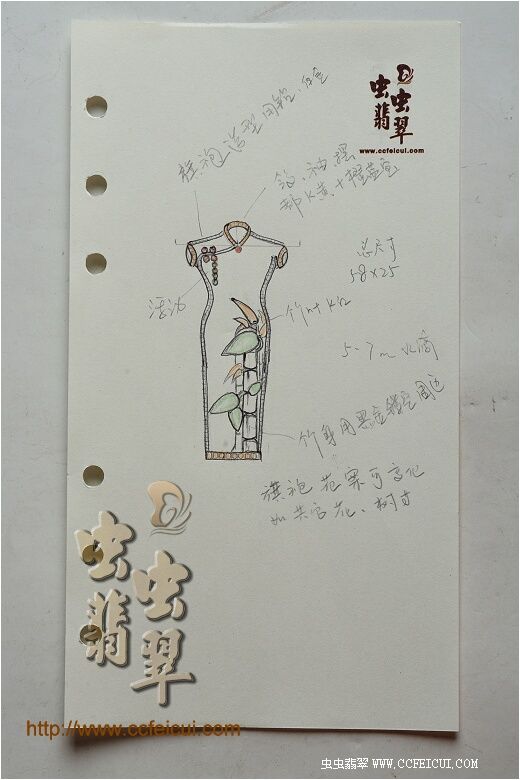 虫虫翡翠
www.ccfeicui.com
旗袍造型用
领、袖、摆
部K黄、
总尺寸
58×25
活动
竹叶K红
5.7m 水滴
竹身用黑金
旗袍花果可变化
如其它花、树寸
虫虫翡翠
http://www.ccfeicui.com
虫虫翡翠 WWW.CCFEICUI.COM